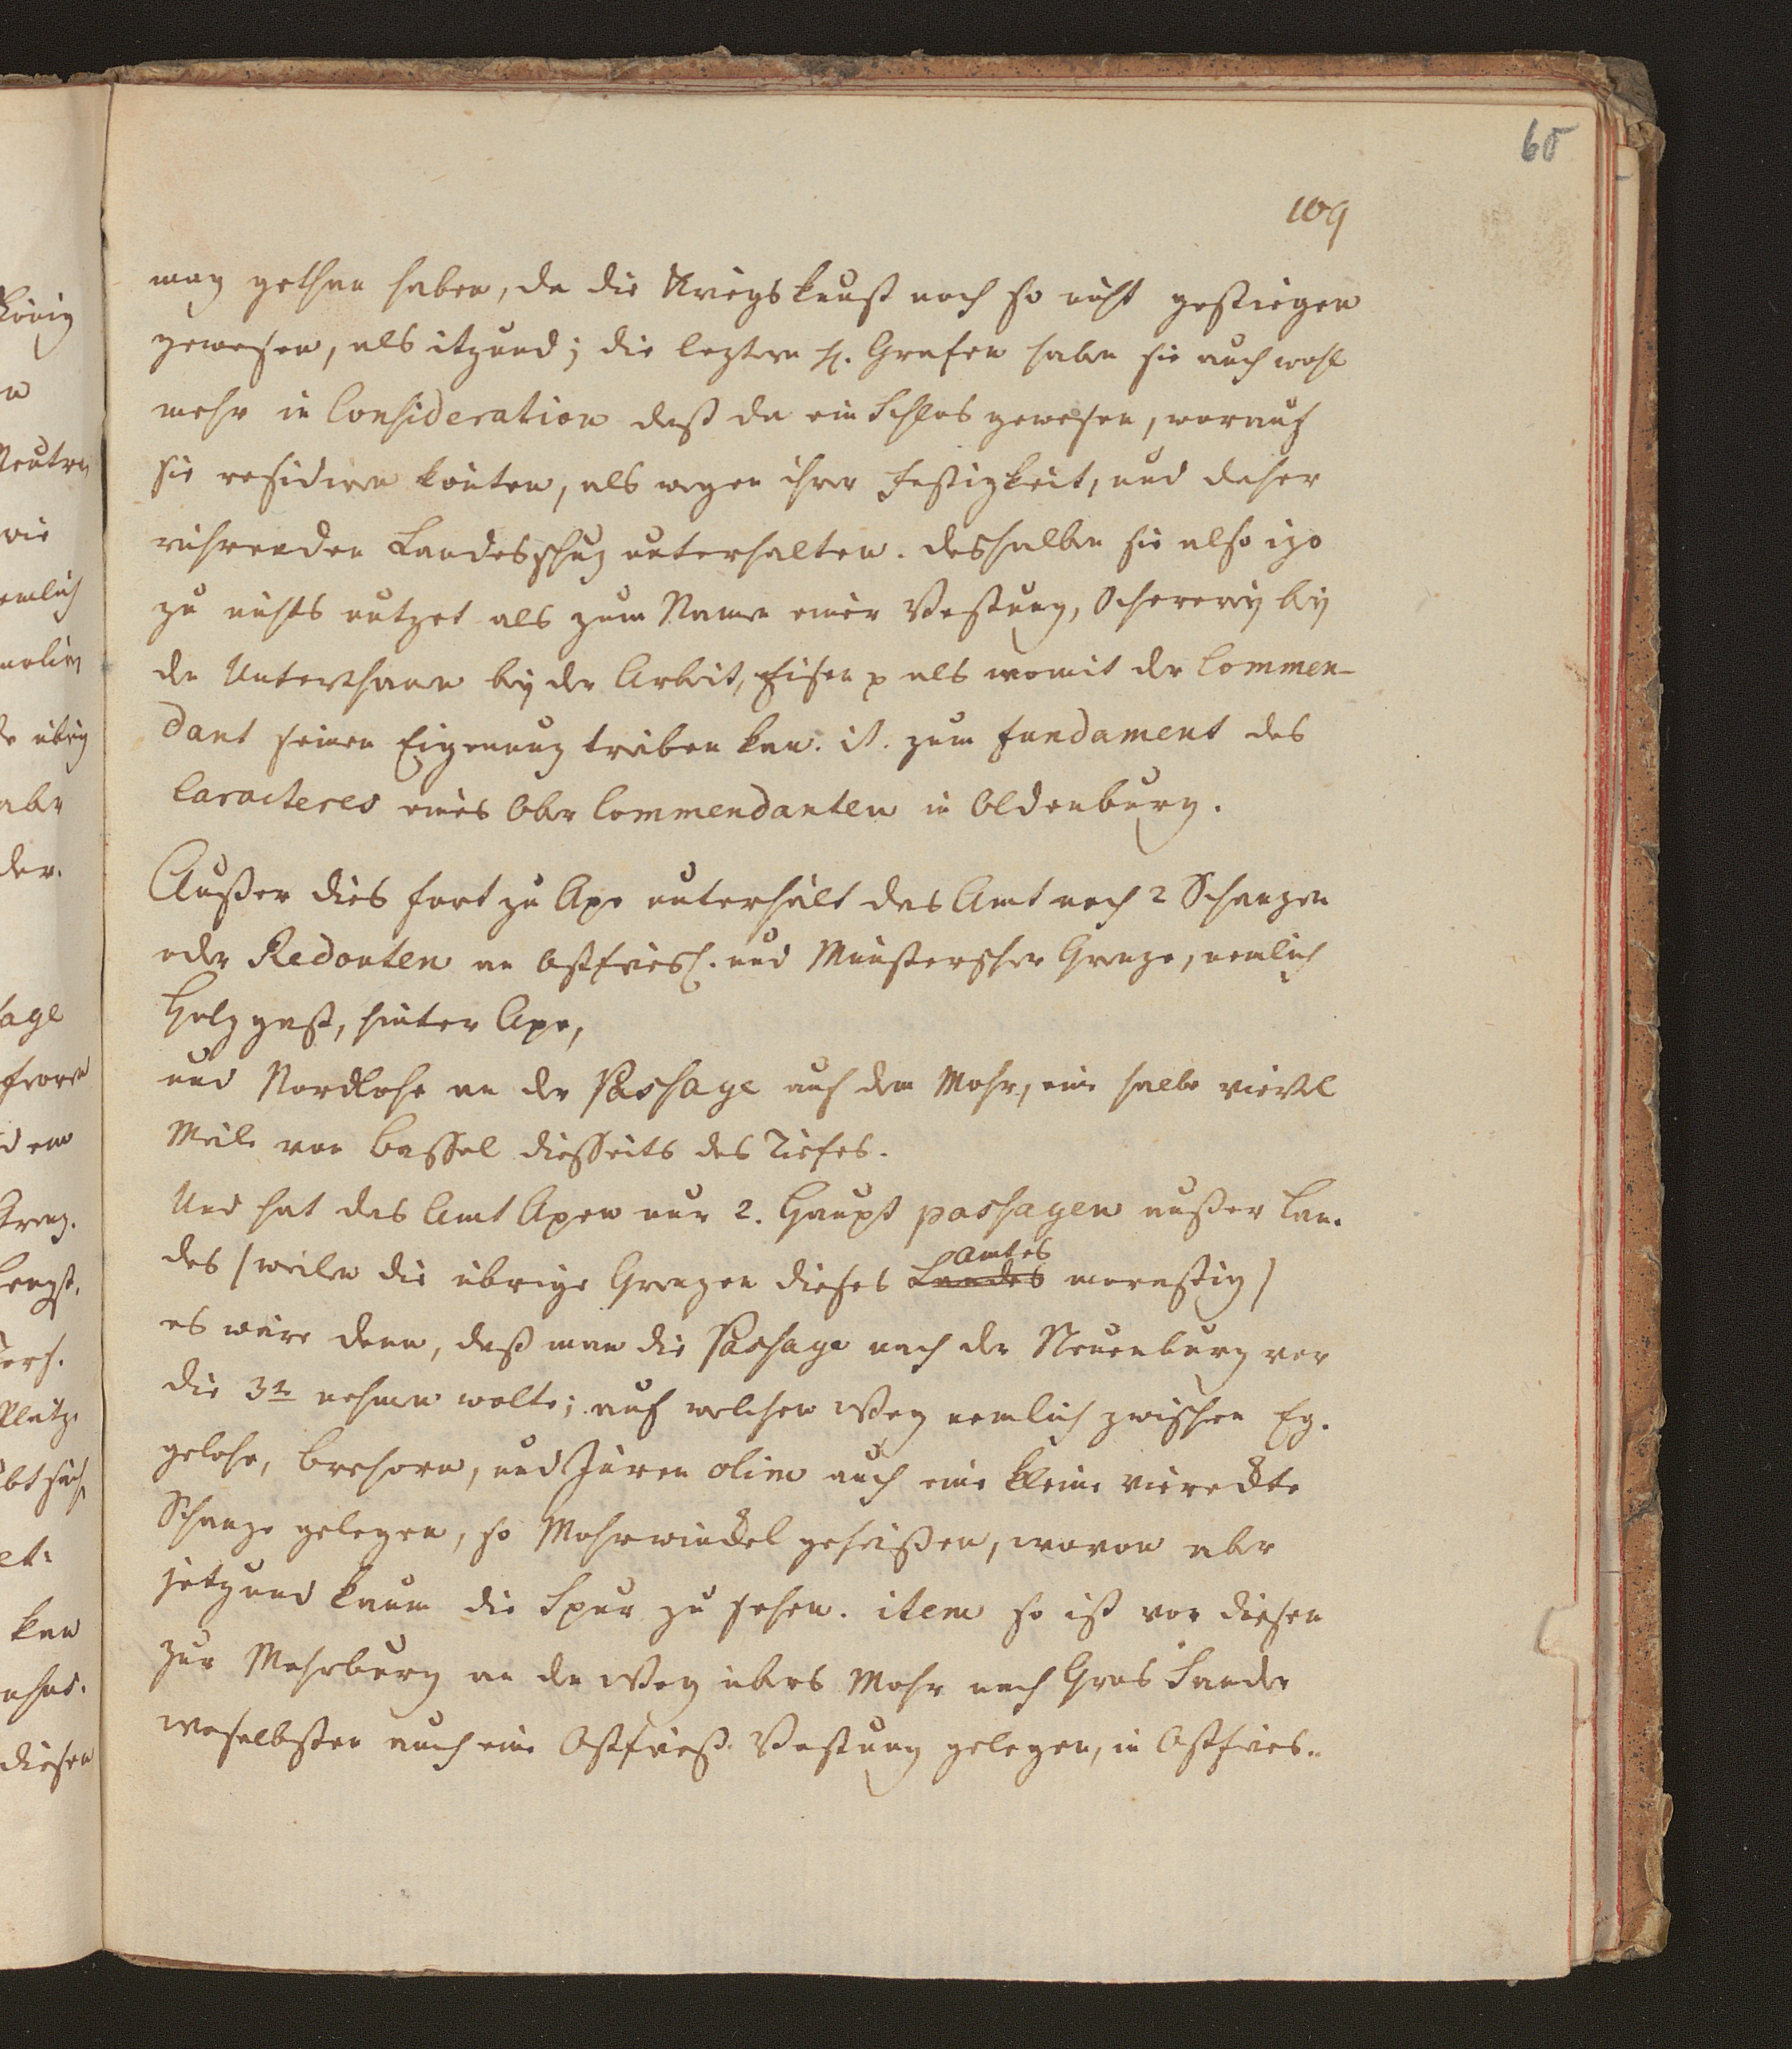 65
109
mag gethan haben, da die Kriegskunst noch so nicht gestiegen
gewesen, als itzund; die leztern H. Grafen haben sie auch wohl
mehr in Consideration daß da ein Schlos gewesen, worauf
sie residiren könten, als wegen ihrer Festigkeit, und daher
rührenden Landesschuz unterhalten. deshalben sie also izo
zu nichts nutzet als zum Namen einer Vestung, bey
den Unterthanen bey der Arbeit, als womit der Commen-
dant seinen Eigennuz treiben kan. it. zum fundament des
Caracteres eines Ober Commendanten in Oldenburg.
Außer dies fort zu Ape unterhält das Amt noch 2 Schanzen
oder Redouten an Ostfries. und Münsterscher Grenze, nemlich
Holzgast, hinter Ape,
und Nordlohe an der Passage auf dem Mohr, eine halbe viertel
Meile von Bassel diesseits des Tiefes.
Und hat das Amt Apen nur 2. Haupt passagen außer Lan-
des / weilen die übrige Grenzen dieses Landes Amtes morastig /
es wäre denn, daß man die Passage nach der Neuenburg vor
die 3te nehmen wolte; auf welchen Weg nemlich zwischen Eg-
gelohe, Brehorn, und Jüren olim auch eine kleine viereckte
Schanze gelegen, so Mohrwinckel geheißen, wovon aber
jetzund kaum die Spur zu sehen. item so ist vor diesen
zur Mohrburg an den Weg übers Mohr nach Gros Sander
woselbsten auch eine Ostfrieß. Vestung gelegen, in Ostfries-
König
Neutra
wie
emlich
übrig
aber
der.
sage
dem
Grenz.
Platz.
kan
diesen